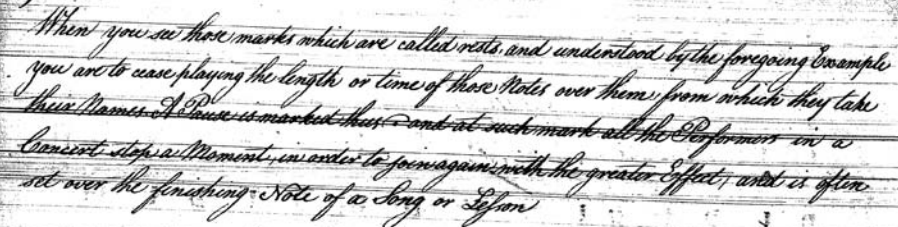 When you see those marks which are called rests, and understood by the foregoing Example
you are to cease playing the length or time of those Notes over them, from which they take
their Names. A Pause is marked thus and at such mark all the Performers in a
Concert stop a Moment, in order to join again with the greater Effect; and is often
set over the finishing Note of a Song or Leſson